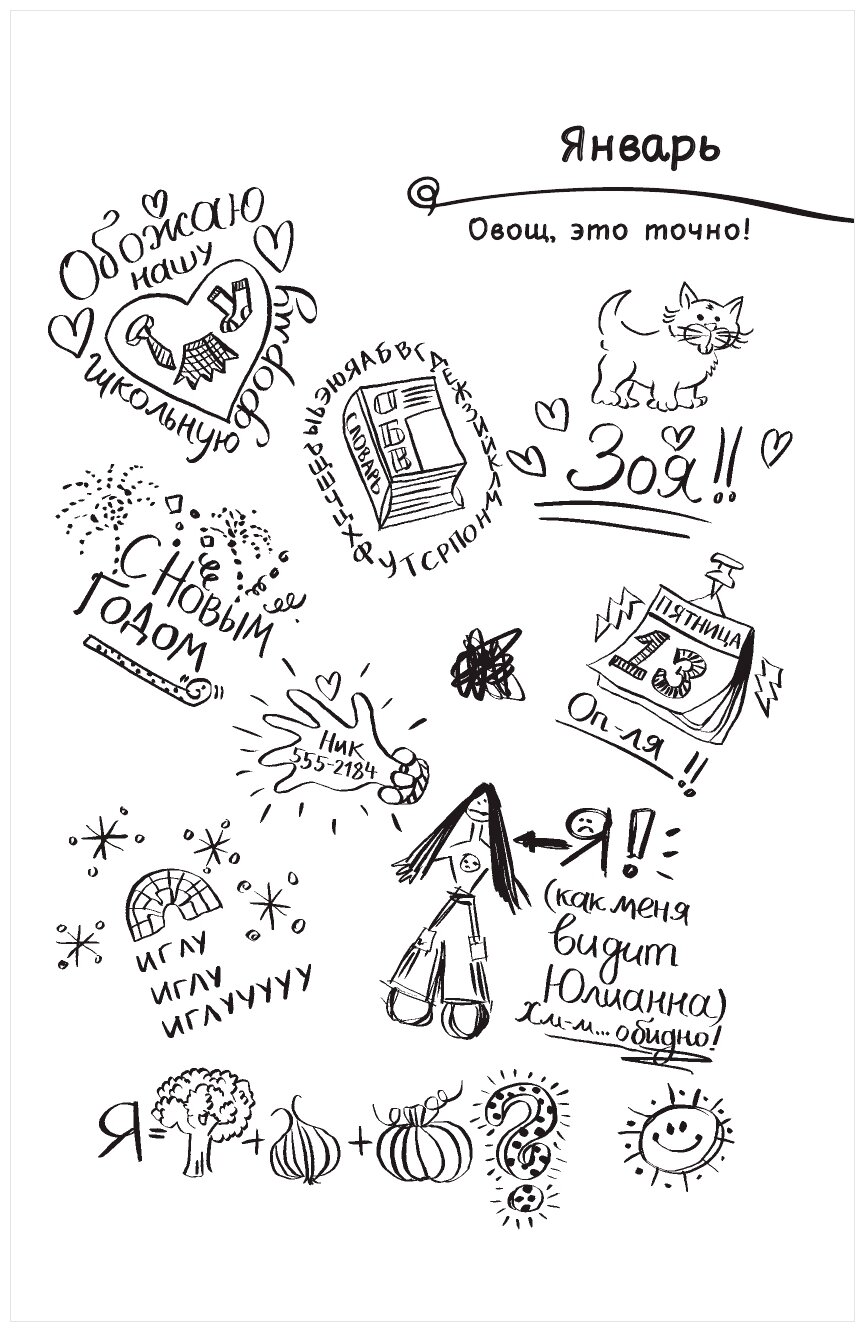 Январь
Овощ, это точно!
Обожаю
нашу
школьную
форму
АБВГДЕЖЗИЙКЛМНОПРСТУФХЦЧШЩЪЫЬЭЮЯ
АБВ
СЛОВАРЬ
Зоя!!
С Новым
Годом
ПЯТНИЦА
13
Оп-ля!!
Ник
555-2184
Я!
(как меня
видит
Юлианна)
Хм-м... обидно!
ИГЛУ
ИГЛУ
ИГЛУУУУУ
Я= + + ?